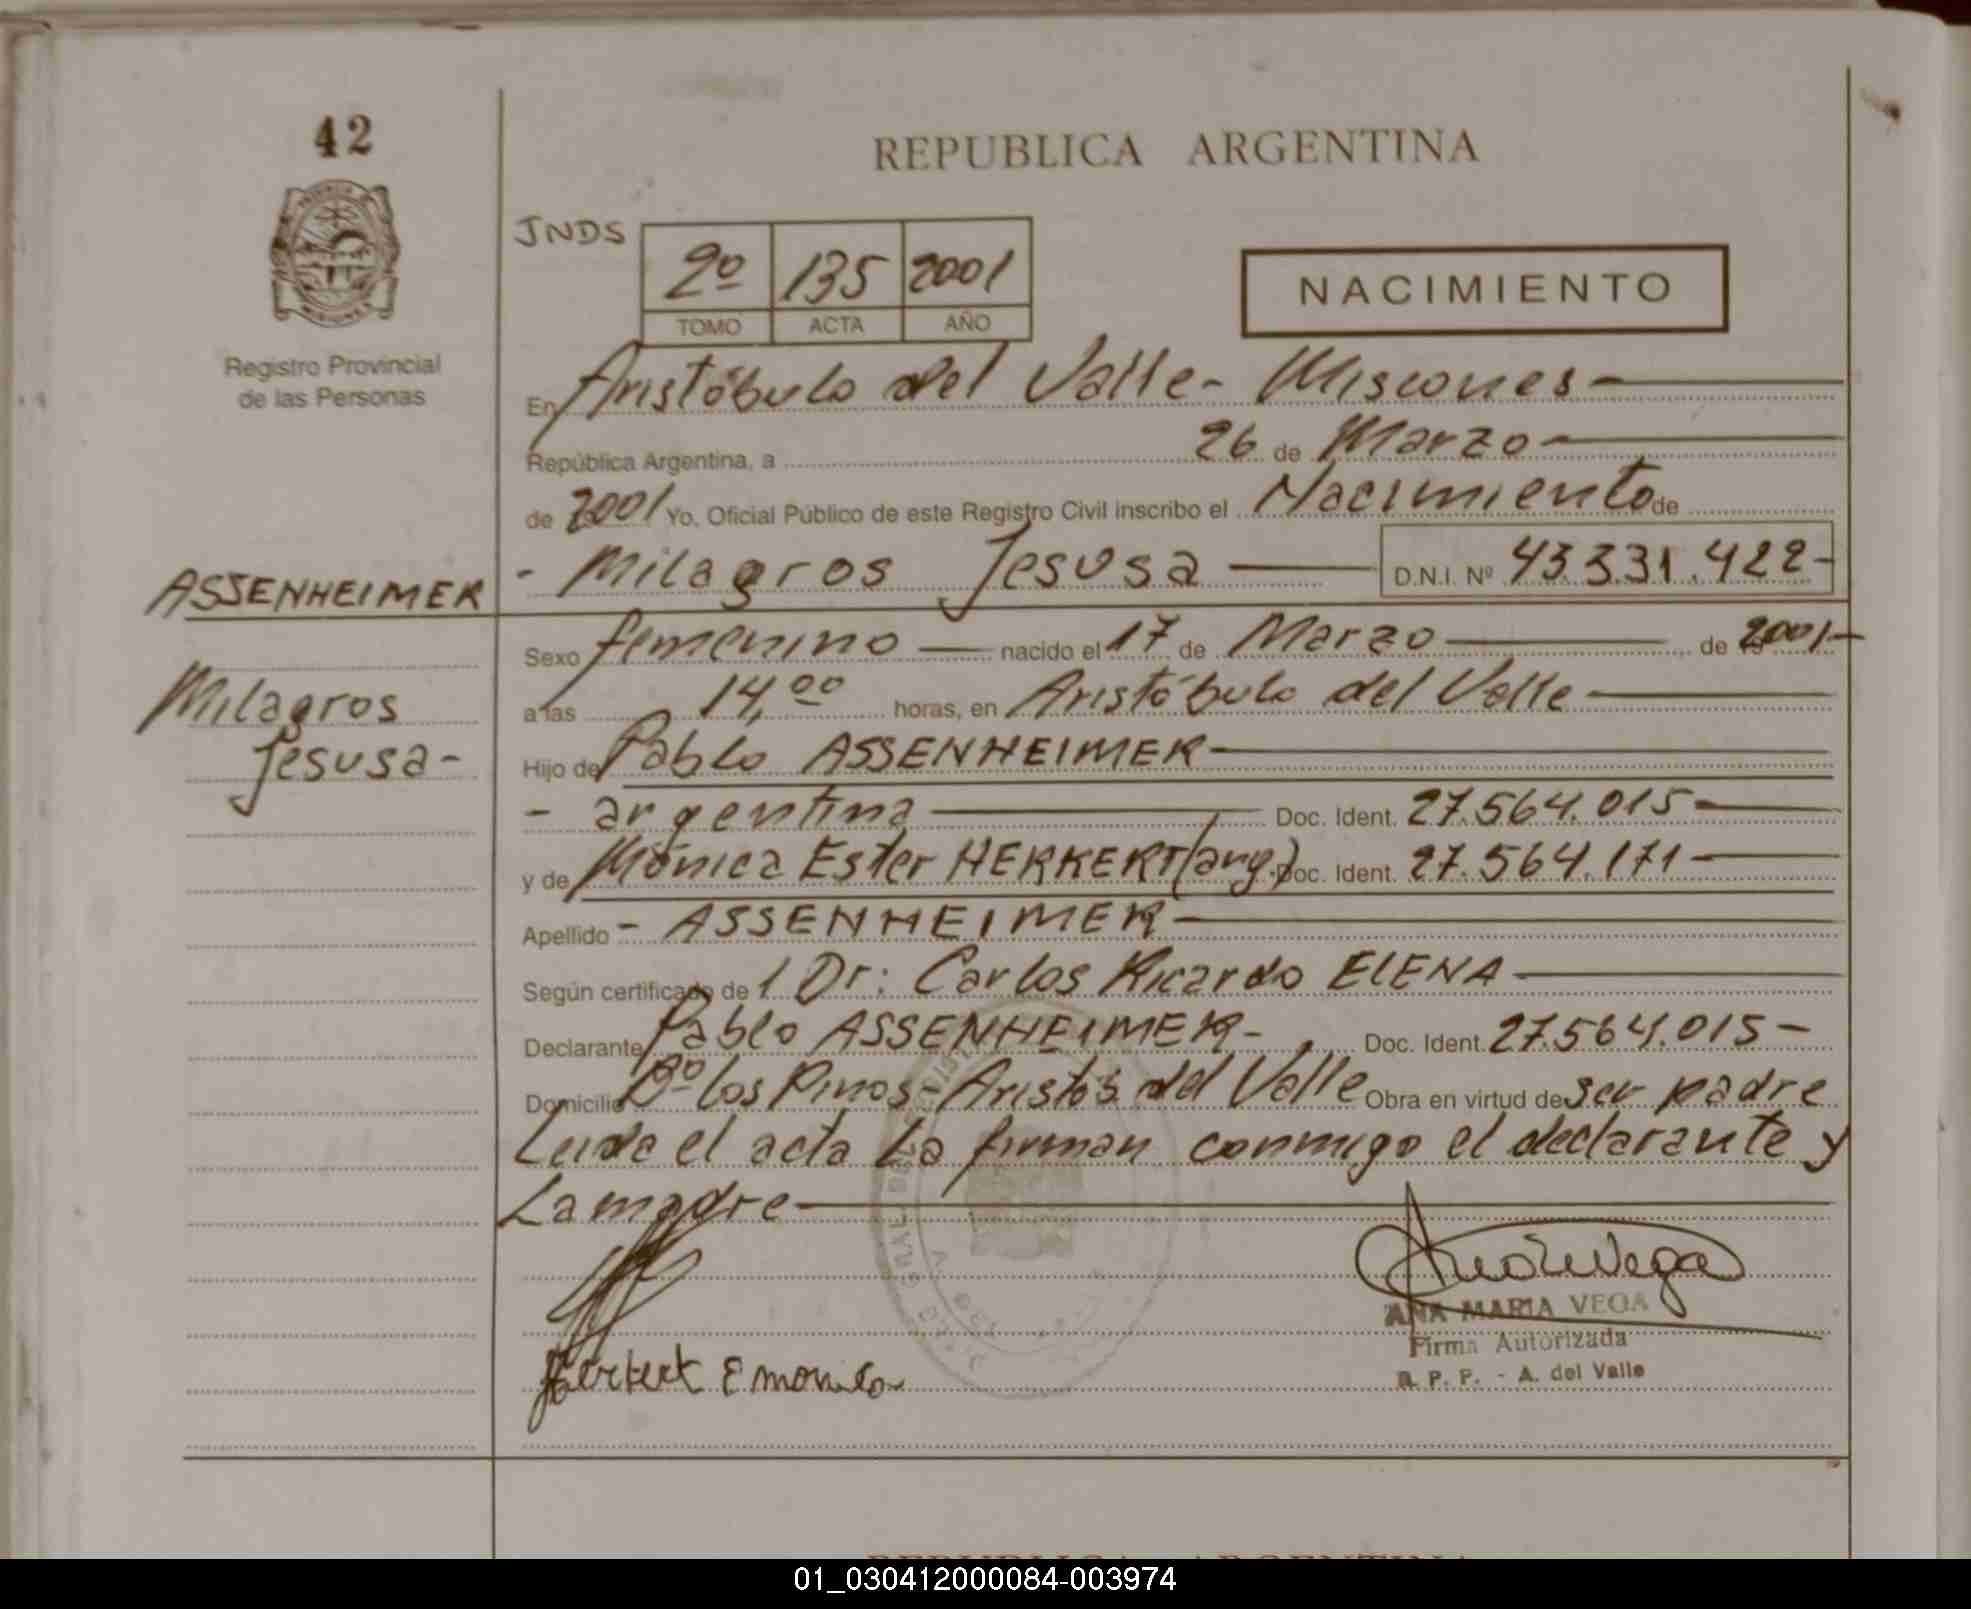 42
REPUBLICA ARGENTINA
JNDS
2º 135 2001
TOMO ACTA AÑO
NACIMIENTO
Registro Provincial
de las Personas
En Aristóbulo del Valle- Misiones-
República Argentina, a 26 de Marzo-
de 2001 Yo, Oficial Público de este Registro Civil inscribo el Nacimiento de
ASSENHEIMER
- Milagros Jesusa - D.N.I. Nº 43.331.422-
Sexo femenino - nacido el 17 de Marzo - de 2001-
Milagros
Jesusa-
a las 14,00 horas, en Aristóbulo del Valle-
Hijo de Pablo ASSENHEIMER-
- argentina - Doc. Ident. 27.564.015-
y de Mónica Ester HERKERT (arg.) Doc. Ident. 27.564.171-
Apellido - ASSENHEIMER-
Según certificado de / Dr: Carlos Ricardo ELENA-
Declarante Pablo ASSENHEIMER- Doc. Ident. 27.564.015-
Domicilio Bº Los Pinos- Aristób. del Valle Obra en virtud de ser padre
Leída el acta la firman conmigo el declarante y
La madre-
Ana M Vega
ANA MARIA VEGA
Firma Autorizada
R. P. P. - A. del Valle
Herkert E monica
01_030412000084-003974